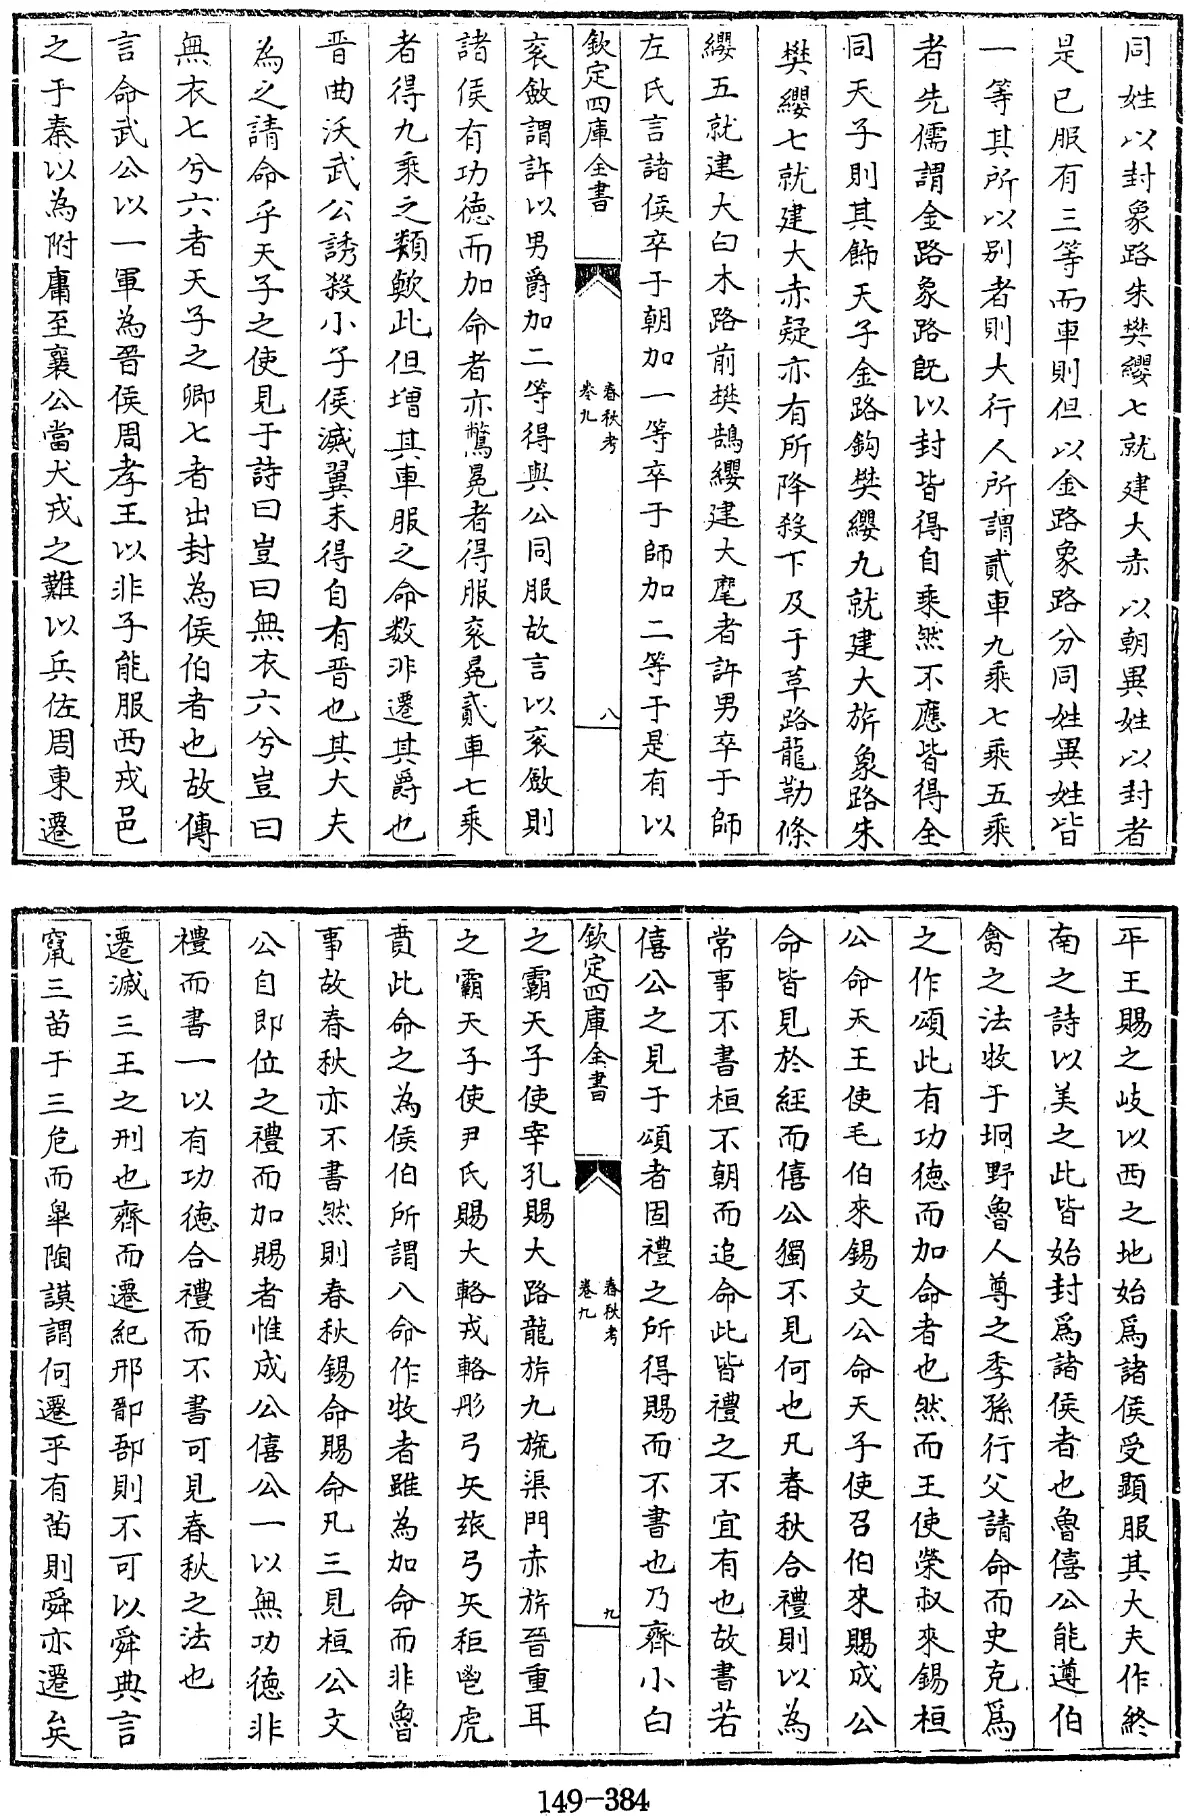 同姓以封象路朱樊纓七就建大赤以朝異姓以封者
是已服有三等而車則但以金路象路分同姓異姓皆
一等其所以别者則大行人所謂貳車九乘七乘五乘
者先儒謂金路象路既以封皆得自乘然不應皆得全
同天子則其飾天子金路鈎樊纓九就建大旂象路朱
樊纓七就建大赤疑亦有所降殺下及于革路龍勒條
纓五就建大白木路前樊鵠纓建大麾者許男卒于師
左氏言諸侯卒于朝加一等卒于師加二等于是有以
欽定四庫全書
春秋考
卷九
八
衮斂謂許以男爵加二等得與公同服故言以衮斂則
諸侯有功德而加命者亦驚冕者得服衮冕貳車七乘
者得九乘之類歟此但增其車服之命数非遷其爵也
晋曲沃武公誘殺小子侯滅翼未得自有晋也其大夫
為之請命乎天子之使見于詩曰豈曰無衣六兮豈曰
無衣七兮六者天子之卿七者出封為侯伯者也故傳
言命武公以一軍為晉侯周孝王以非子能服西戎邑
之于秦以為附庸至襄公當犬戎之難以兵佐周東遷
平王賜之岐以西之地始爲諸侯受顯服其大夫作終
南之詩以美之此皆始封爲諸侯者也魯僖公能遵伯
禽之法牧于坰野魯人尊之季孫行父請命而史克爲
之作頌此有功德而加命者也然而王使榮叔來錫桓
公命天王使毛伯來錫文公命天子使召伯來賜成公
命皆見於經而僖公獨不見何也凡春秋合禮則以為
常事不書桓不朝而追命此皆禮之不宜有也故書若
僖公之見于頌者固禮之所得賜而不書也乃齊小白
欽定四庫全書
春秋考
卷九
九
之霸天子使宰孔賜大路龍旂九旒渠門赤旂晉重耳
之霸天子使尹氏賜大輅戎輅彤弓矢玈弓矢秬鬯虎
賁此命之為侯伯所謂八命作牧者雖為加命而非魯
事故春秋亦不書然則春秋錫命賜命凡三見桓公文
公自即位之禮而加賜者惟成公僖公一以無功德非
禮而書一以有功德合禮而不書可見春秋之法也
遷滅三王之刑也齊而遷紀邢鄑郚則不可以舜典言
竄三苗于三危而臯陶謨謂何遷乎有苗則舜亦遷矣
149-384